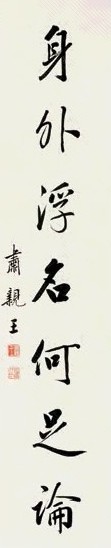 身外浮名何足論
肅親王